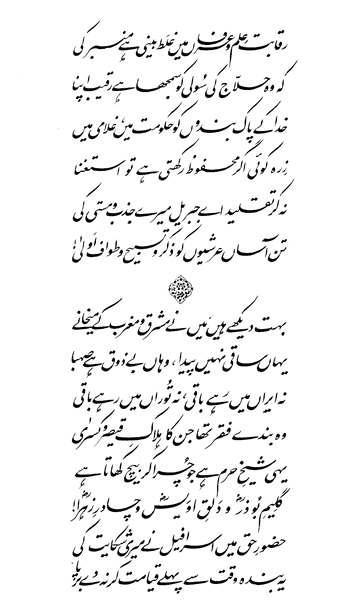 رقابت علم و عرفاں میں غلط بینی ہے منبر کی
کہ وہ حلاّج کی سُولی کو سمجھا ہے رقیب اپنا
خدا کے پاک بندوں کو حکومت میں، غلامی میں
زِرہ کوئی اگر محفوظ رکھتی ہے تو استغنا
نہ کر تقلید اے جبریل میرے جذب و مستی کی
تن آساں عرشیوں کو ذکر و تسبیح و طواف اَولیٰ!
بہت دیکھے ہیں مَیں نے مشرق و مغرب کے میخانے
یہاں ساقی نہیں پیدا، وہاں بے ذوق ہے صہبا
نہ ایراں میں رہے باقی، نہ تُوراں میں رہے باقی
وہ بندے فقر تھا جن کا ہلاکِ قیصر و کسریٰ
یہی شیخِ حرم ہے جو چُرا کر بیچ کھاتا ہے
گلیمِ بُوذرؓ و دَلقِ اَویسؓ و چادرِ زہراؓ!
حضورِ حق میں اسرافیل نے میری شکایت کی
یہ بندہ وقت سے پہلے قیامت کر نہ دے برپا